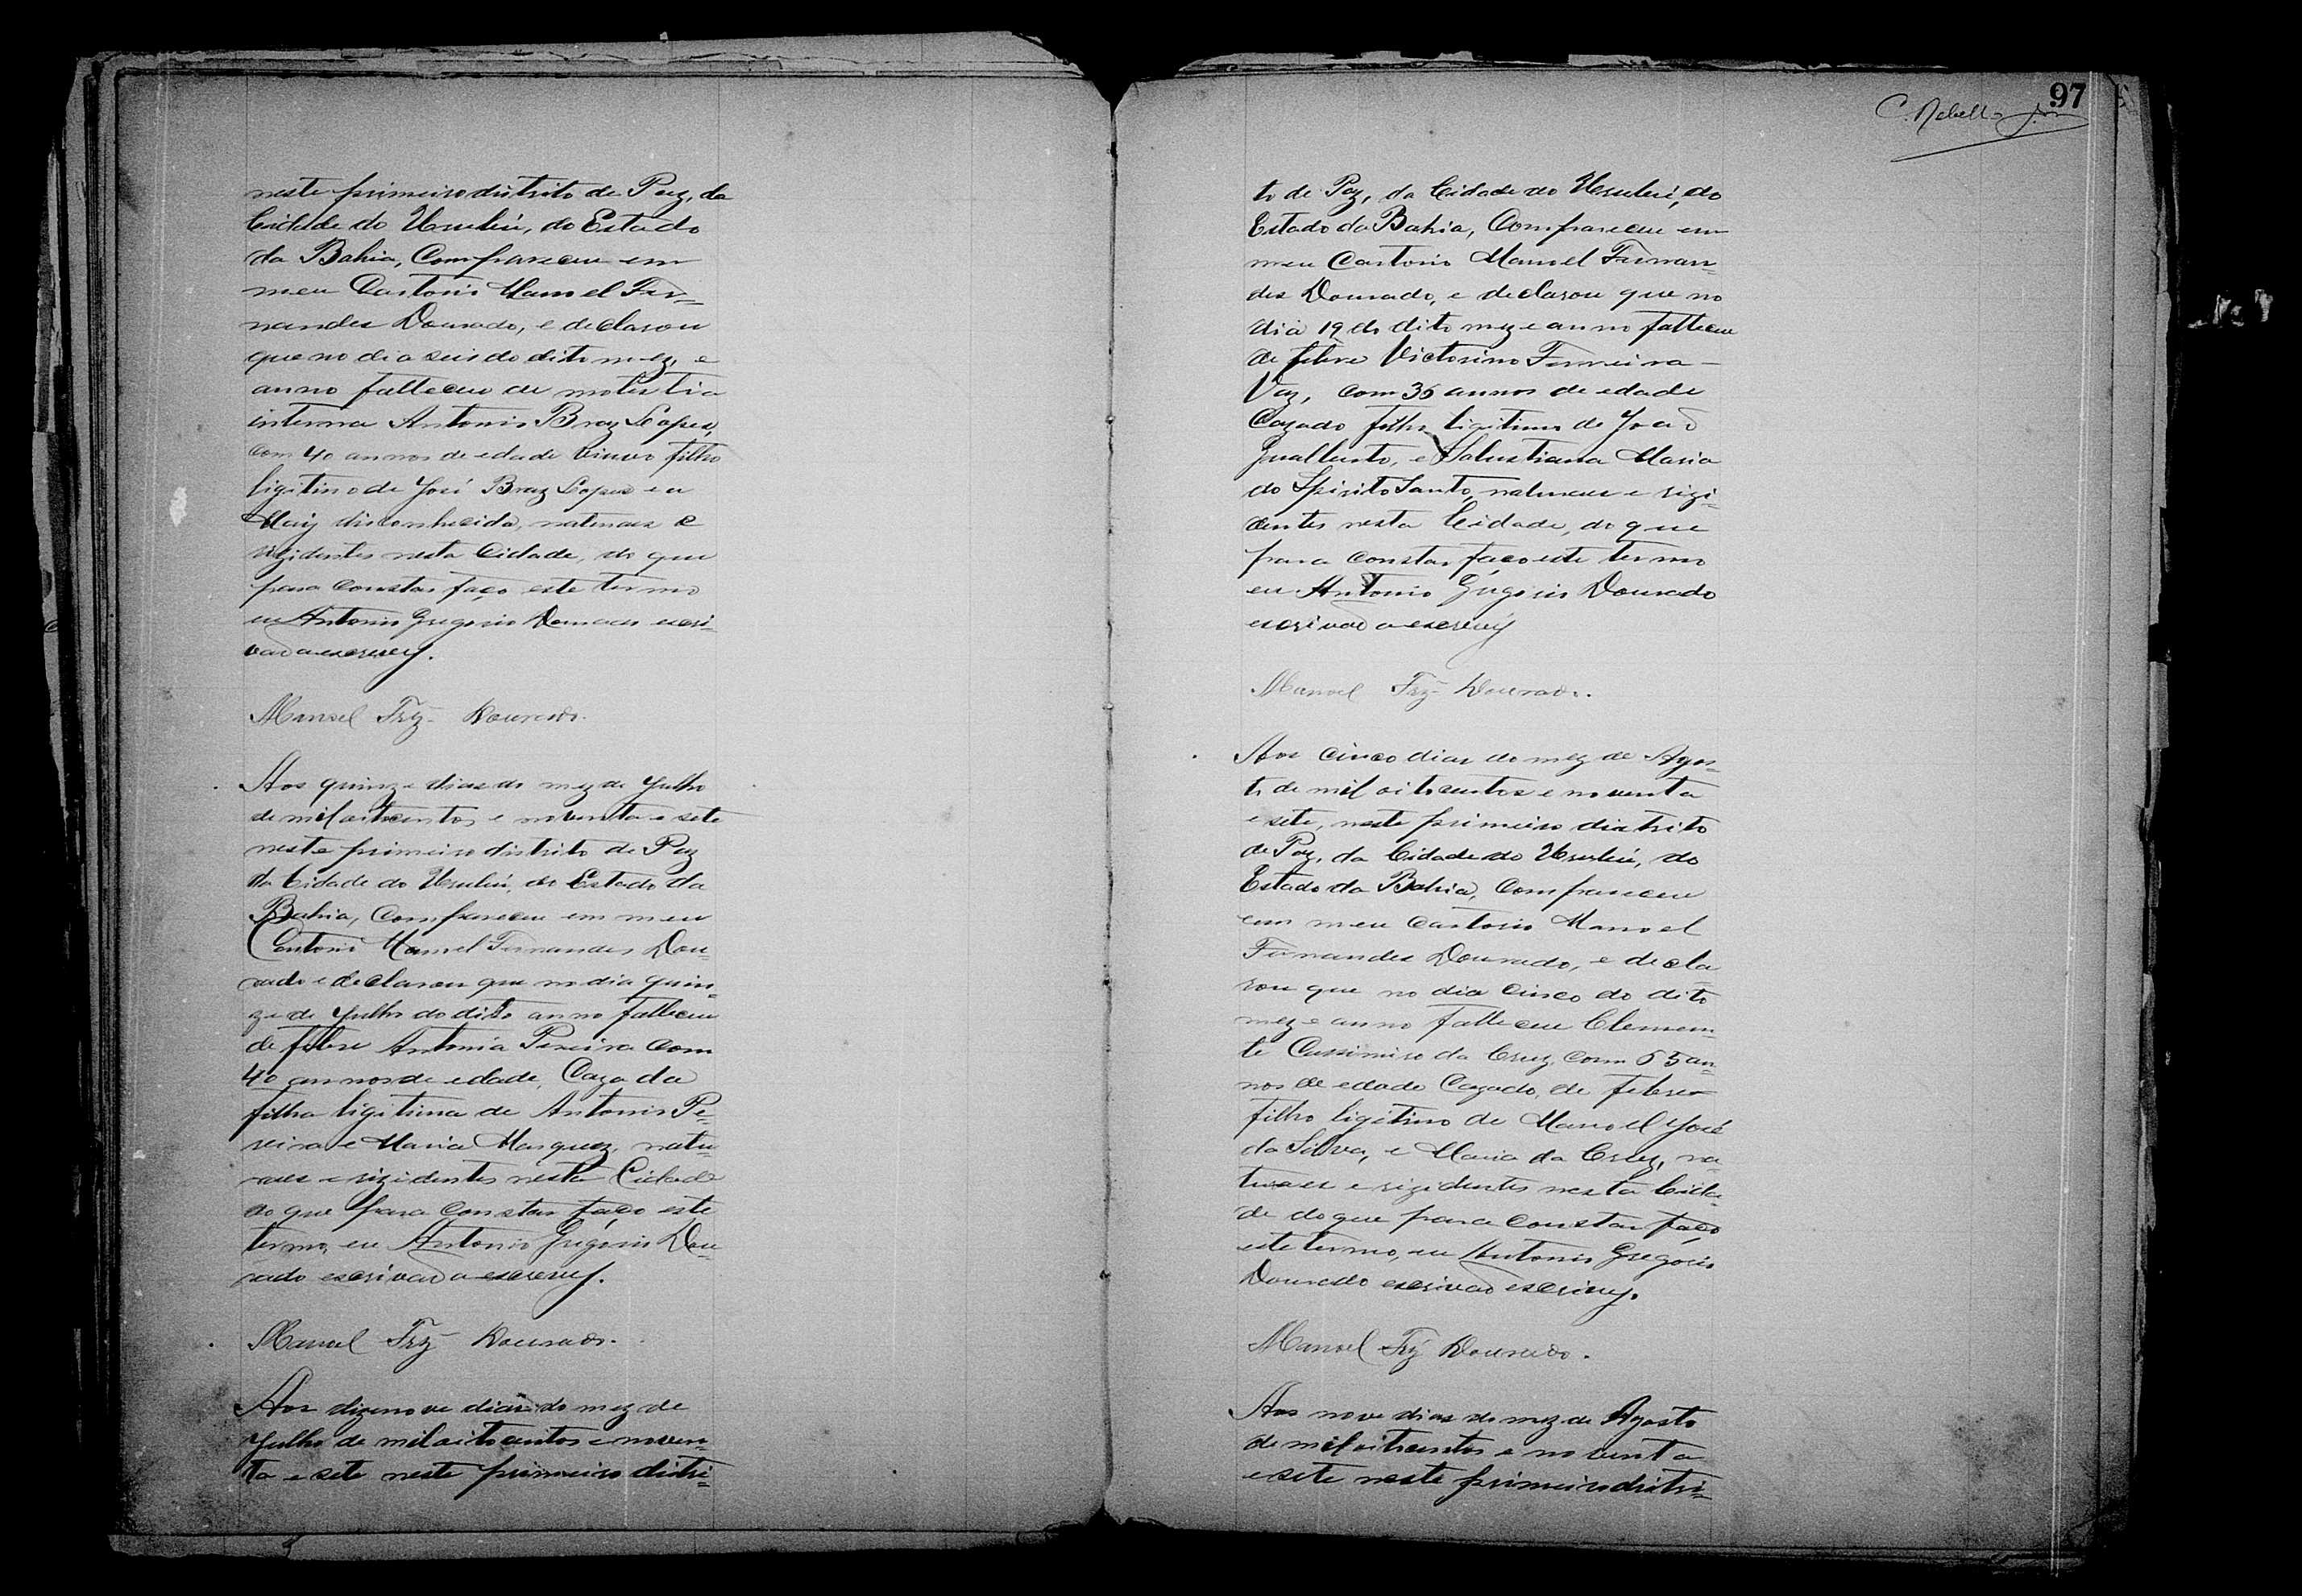 neste primeiro distrito de Paz, da
Cidade do Urubú, do Estado
da Bahia, Compareceu em
meu Cartorio Manoel Fer=
nandes Dourado, e declarou
que no dia seis do dito mez, e
anno falleceu de molestia
interna Antonio Braz Lopes,
com 40 annos de edade viuvo filho
ligitimo de José Braz Lopes e a
Mãy disconhecida, naturaes e
rizidentes nesta Cidade, do que
para constar faço este termo
eu Antonio Gregorio Dourado escri=
vaõ a escrevy.
Manoel Frz Dourado.
Aos quinze dias do mez de Julho
de mil oitocentos e noventa e sete
neste primeiro distrito de Paz
da Cidade do Urubú, do Estado da
Bahia, Compareceu em meu
Cartorio Manoel Fernandes Dou=
rado e declarou que no dia quin=
ze de Julho do dito anno falleceu
de febre Antonia Pereira com
40 annos de edade, Cazada
filha ligitima de Antonio Pe=
reira e Maria Marques, natu=
raes e rizidentes nesta Cidade
do que para constar faço este
termo, eu Antonio Gregorio Dou=
rado escrivaõ a escrevy.
Manoel Frz Dourado.
Aos dizenove dias do mez de
Julho de mil oitocentos e noven=
ta e sete neste primeiro distri=
97
C. Rebello
to de Paz, da Cidade do Urubú, do
Estado da Bahia, Compareceu em
meu Cartorio Manoel Fernan=
des Dourado, e declarou que no
dia 19 do dito mez e anno falleceu
de febre Victorino Ferreira
Vaz, com 36 annos de edade
Cazado filho ligitimo de Joaõ
Gualberto, e Salustiana Maria
do Spirito Santo, naturaes e rizi=
dentes nesta Cidade, do que
para constar faço este termo
eu Antonio Gregorio Dourado
escrivaõ a escrevy
Manoel Frz Dourado.
Aos cinco dias do mez de Agos=
to de mil oitocentos e noventa
e sete, neste primeiro distrito
de Paz, da Cidade do Urubú, do
Estado da Bahia, Compareceu
em meu Cartorio Manoel
Fernandes Dourado, e decla
rou que no dia cinco do dito
mez e anno falleceu Clemen=
te Cassimiro da Cruz, com 65 an=
nos de edade Cazado, de febre
filho ligitimo de Manoel José
da Silva, e Maria da Cruz, na=
turaes e rizidentes nesta Cida=
de do que para constar faço
este termo, eu Antonio Gregorio
Dourado escrivaõ escrevy.
Manoel Frz Dourado.
Aos nove dias do mez de Agosto
de mil oitocentos e noventa
e sete neste primeiro distri=